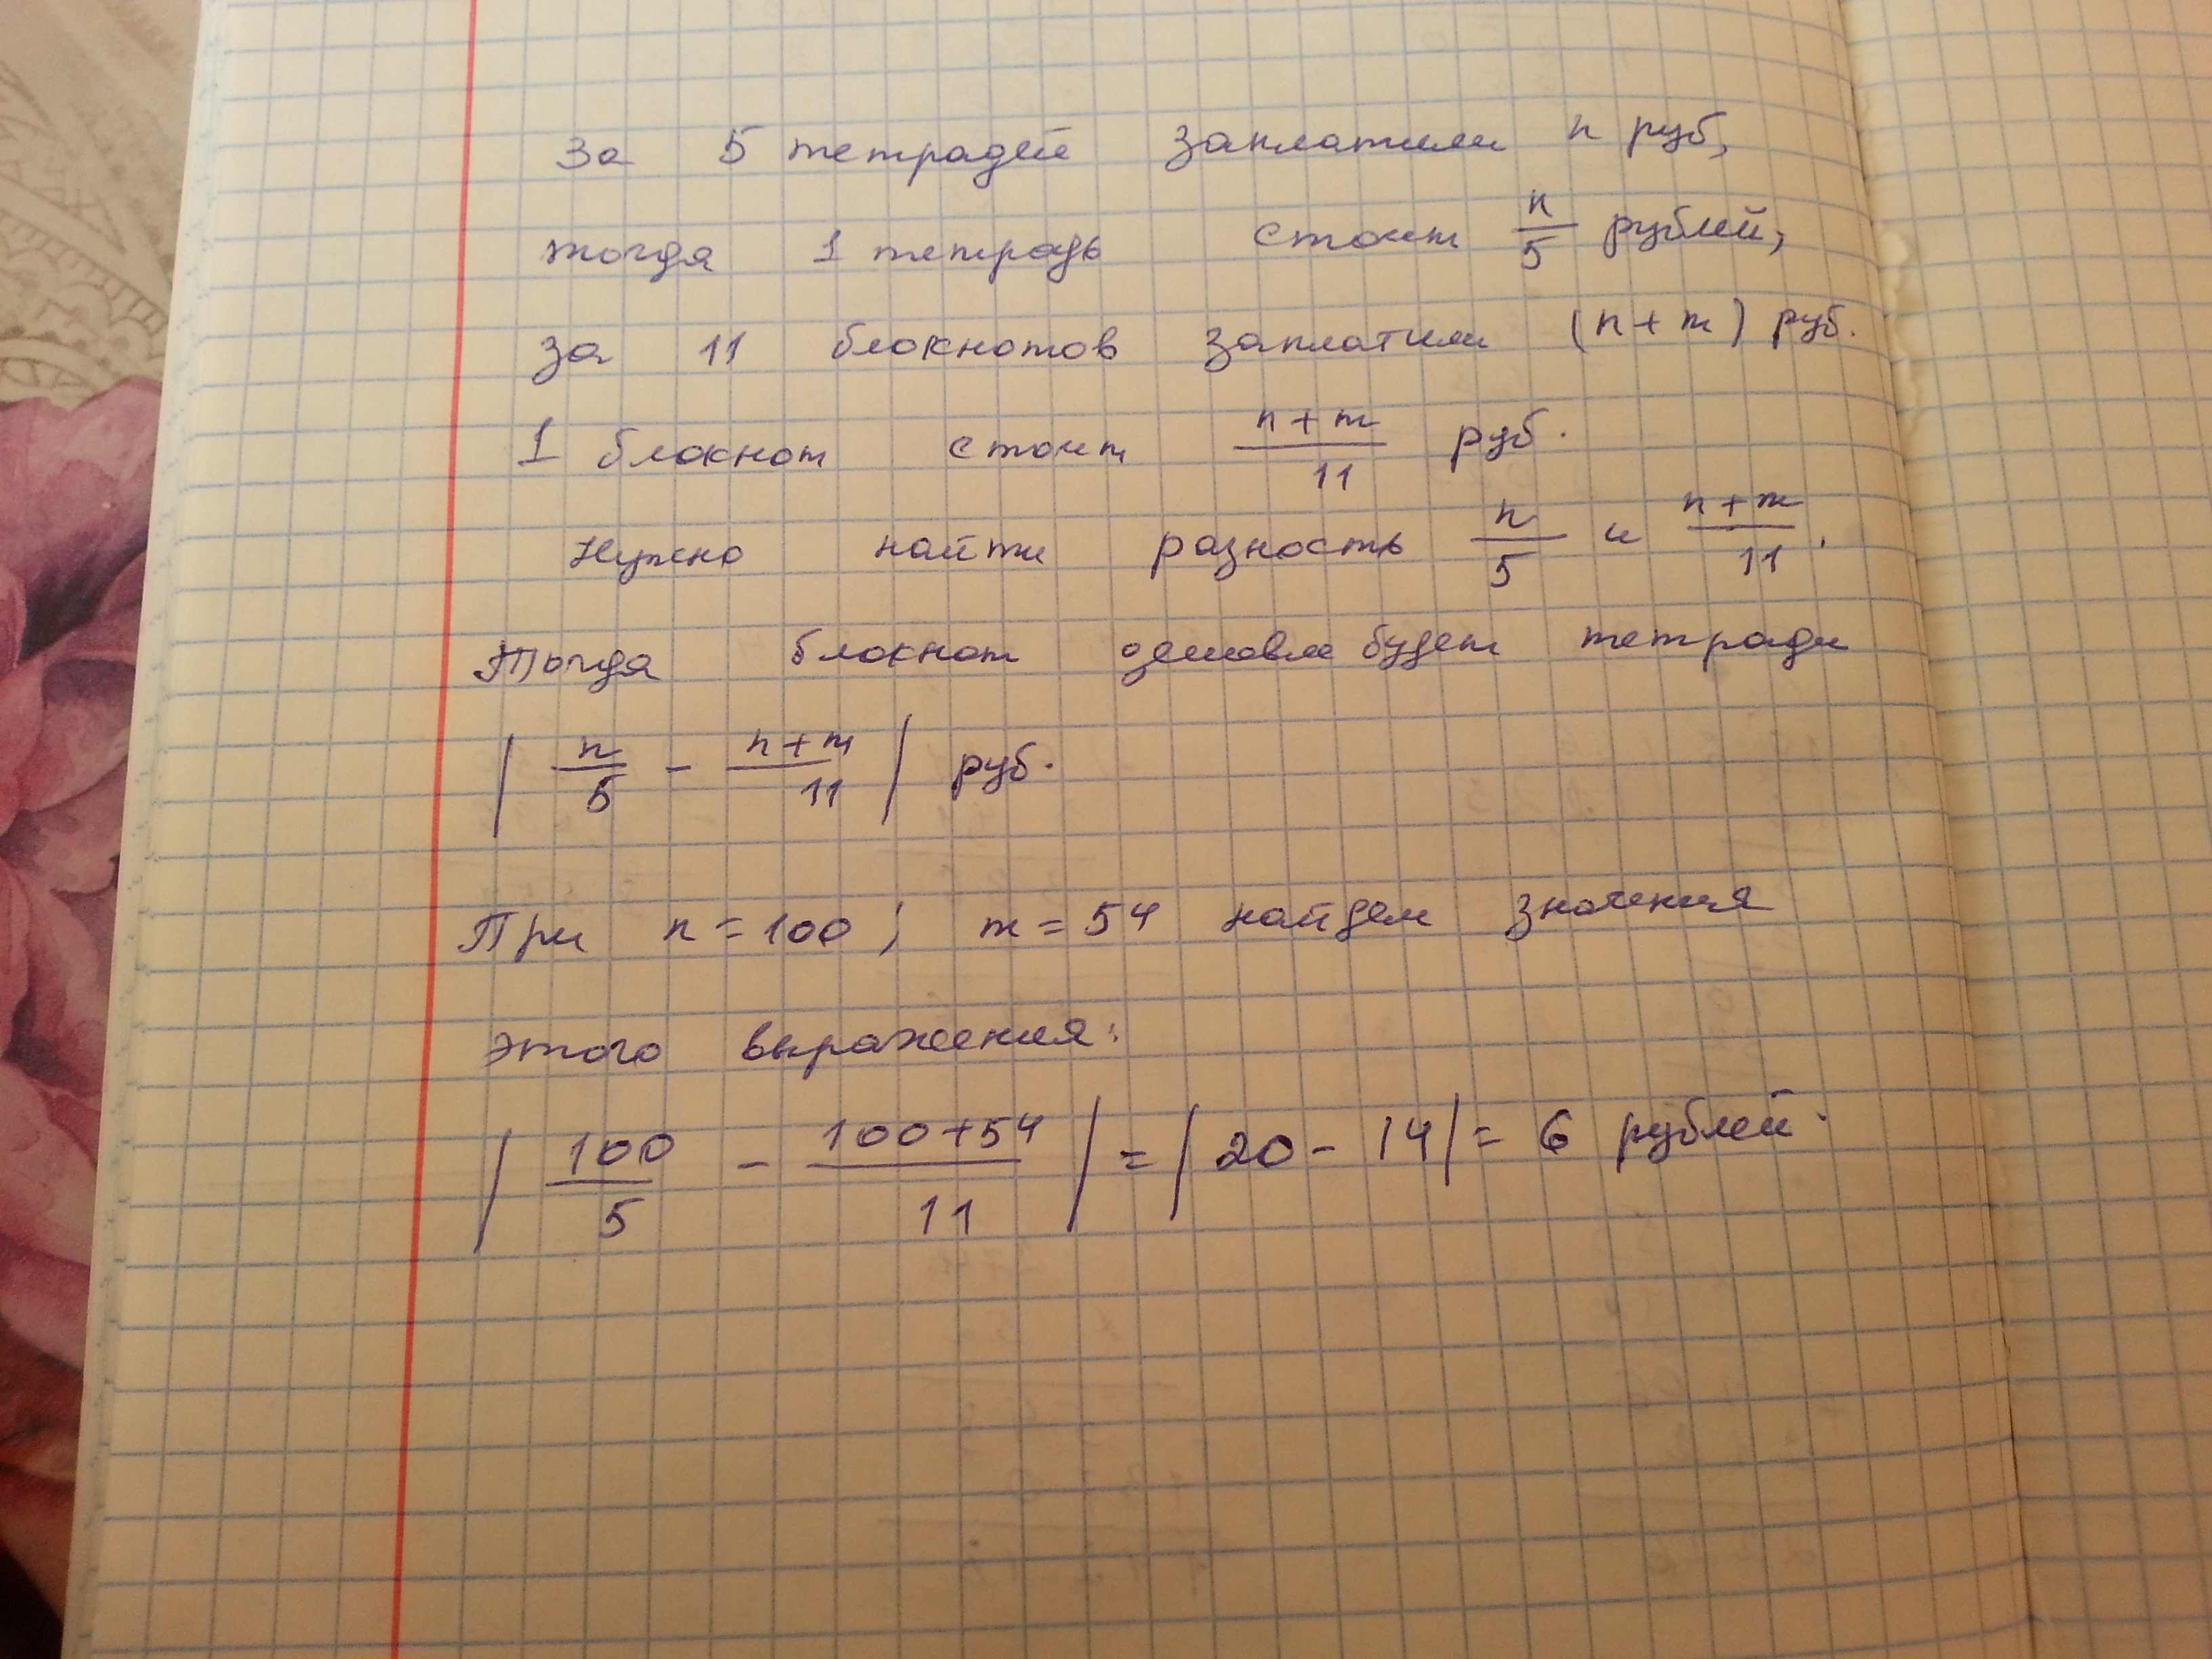 За 5 тетрадей заплатили n руб,
тогда 1 тетрадь стоит n/5 рублей,
за 11 блокнотов заплатили (n+m) руб.
1 блокнот стоит (n+m)/11 руб.
Нужно найти разность n/5 и (n+m)/11.
Тогда блокнот дешевле будет тетради
| n/5 - (n+m)/11 | руб.
При n=100; m=54 найдем значения
этого выражения:
| 100/5 - (100+54)/11 | = | 20 - 14 | = 6 рублей.